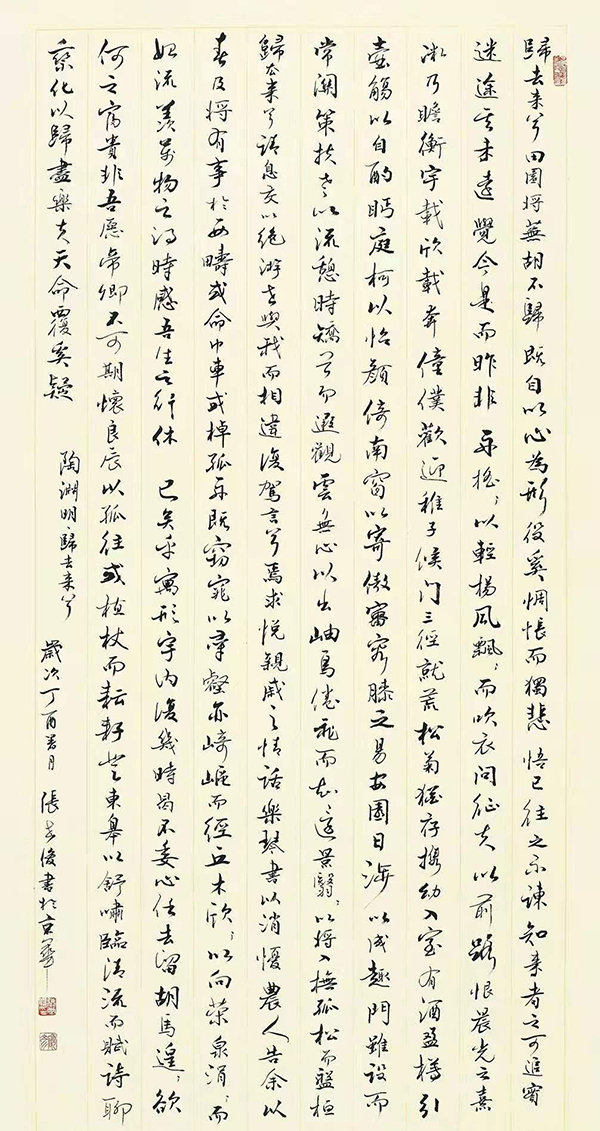 歸去来兮田園將蕪胡不歸既自以心為形役奚惆悵而獨悲悟已往之不諫知来者之可追實
迷途其未遠覺今是而昨非舟搖〻以輕揚風飄〻而吹衣問征夫以前路恨晨光之熹
微乃瞻衡宇載欣載奔僮僕歡迎稚子候门三徑就荒松菊猶存攜幼入室有酒盈樽引
壺觴以自酌眄庭柯以怡顏倚南窗以寄傲審容膝之易安園日涉以成趣門雖設而
常關策扶老以流憩時矯首而遐觀雲無心以出岫鳥倦飛而知還景翳〻以將入撫孤松而盤桓
歸去来兮請息交以絕游世與我而相違復駕言兮焉求悅親戚之情話樂琴書以消憂農人告余以
春及將有事於西疇或命巾車或棹孤舟既窈窕以尋壑亦崎嶇而經丘木欣〻以向榮泉涓〻而
始流羨萬物之得時感吾生之行休 已矣乎寓形宇内復幾時曷不委心任去留胡為遑〻欲
何之富貴非吾願帝鄉不可期懷良辰以孤往或植杖而耘耔登東皋以舒嘯臨清流而賦詩聊
乘化以歸盡樂夫天命復奚疑
陶淵明歸去来兮
歲次丁酉 月 張 俊書於京華